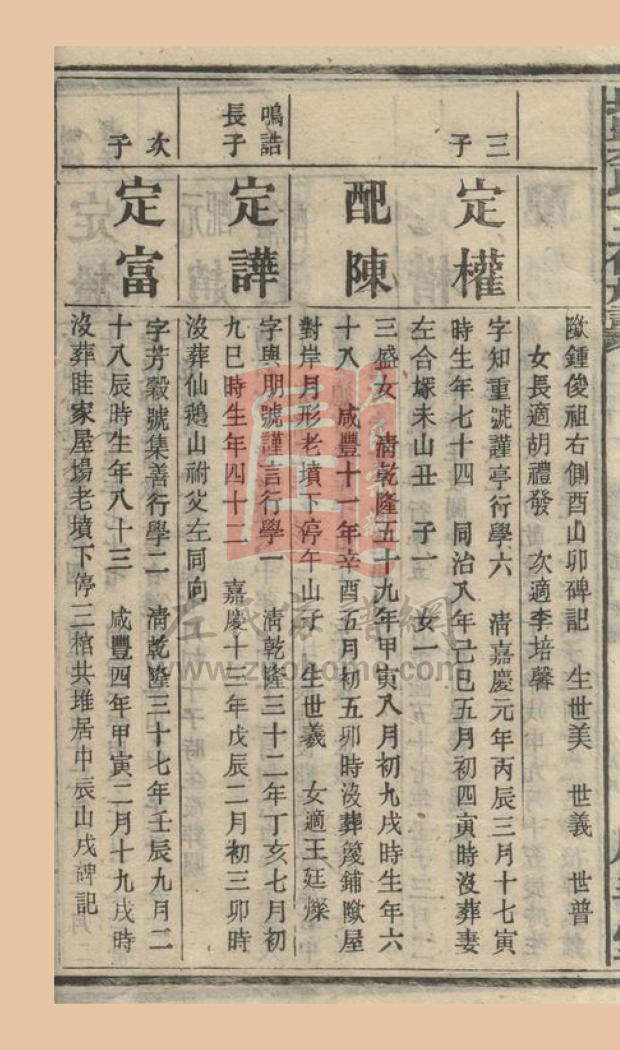 歐鍾俊祖右側酉山卯碑記 生世美 世義 世普
女長適胡禮發 次適李培馨
三子
定權
字知重號謹亭行學六 清嘉慶元年丙辰三月十七寅
時生年七十四 同治八年己巳五月初四寅時沒葬妻
左合塚未山丑 子一 女一
配陳
三盛女 清乾隆五十九年甲寅八月初九戌時生年六
十八 咸豐十一年辛酉五月初五卯時沒葬篢鋪歐屋
對岸月形老墳下停午山子 生世羲 女適王廷爍
鳴誥
長子
定譁
字與朋號謹言行學一 清乾隆三十二年丁亥七月初
九巳時生年四十二 嘉慶十三年戊辰二月初三卯時
沒葬仙鵝山祔父左同向
次子
定富
字芳穀號集善行學二 清乾隆三十七年壬辰九月二
十八辰時生年八十三 咸豐四年甲寅二月十九戌時
沒葬眭家屋場老墳下停三棺共堆居中辰山戌碑記
左氏家譜網
www.zuohome.com